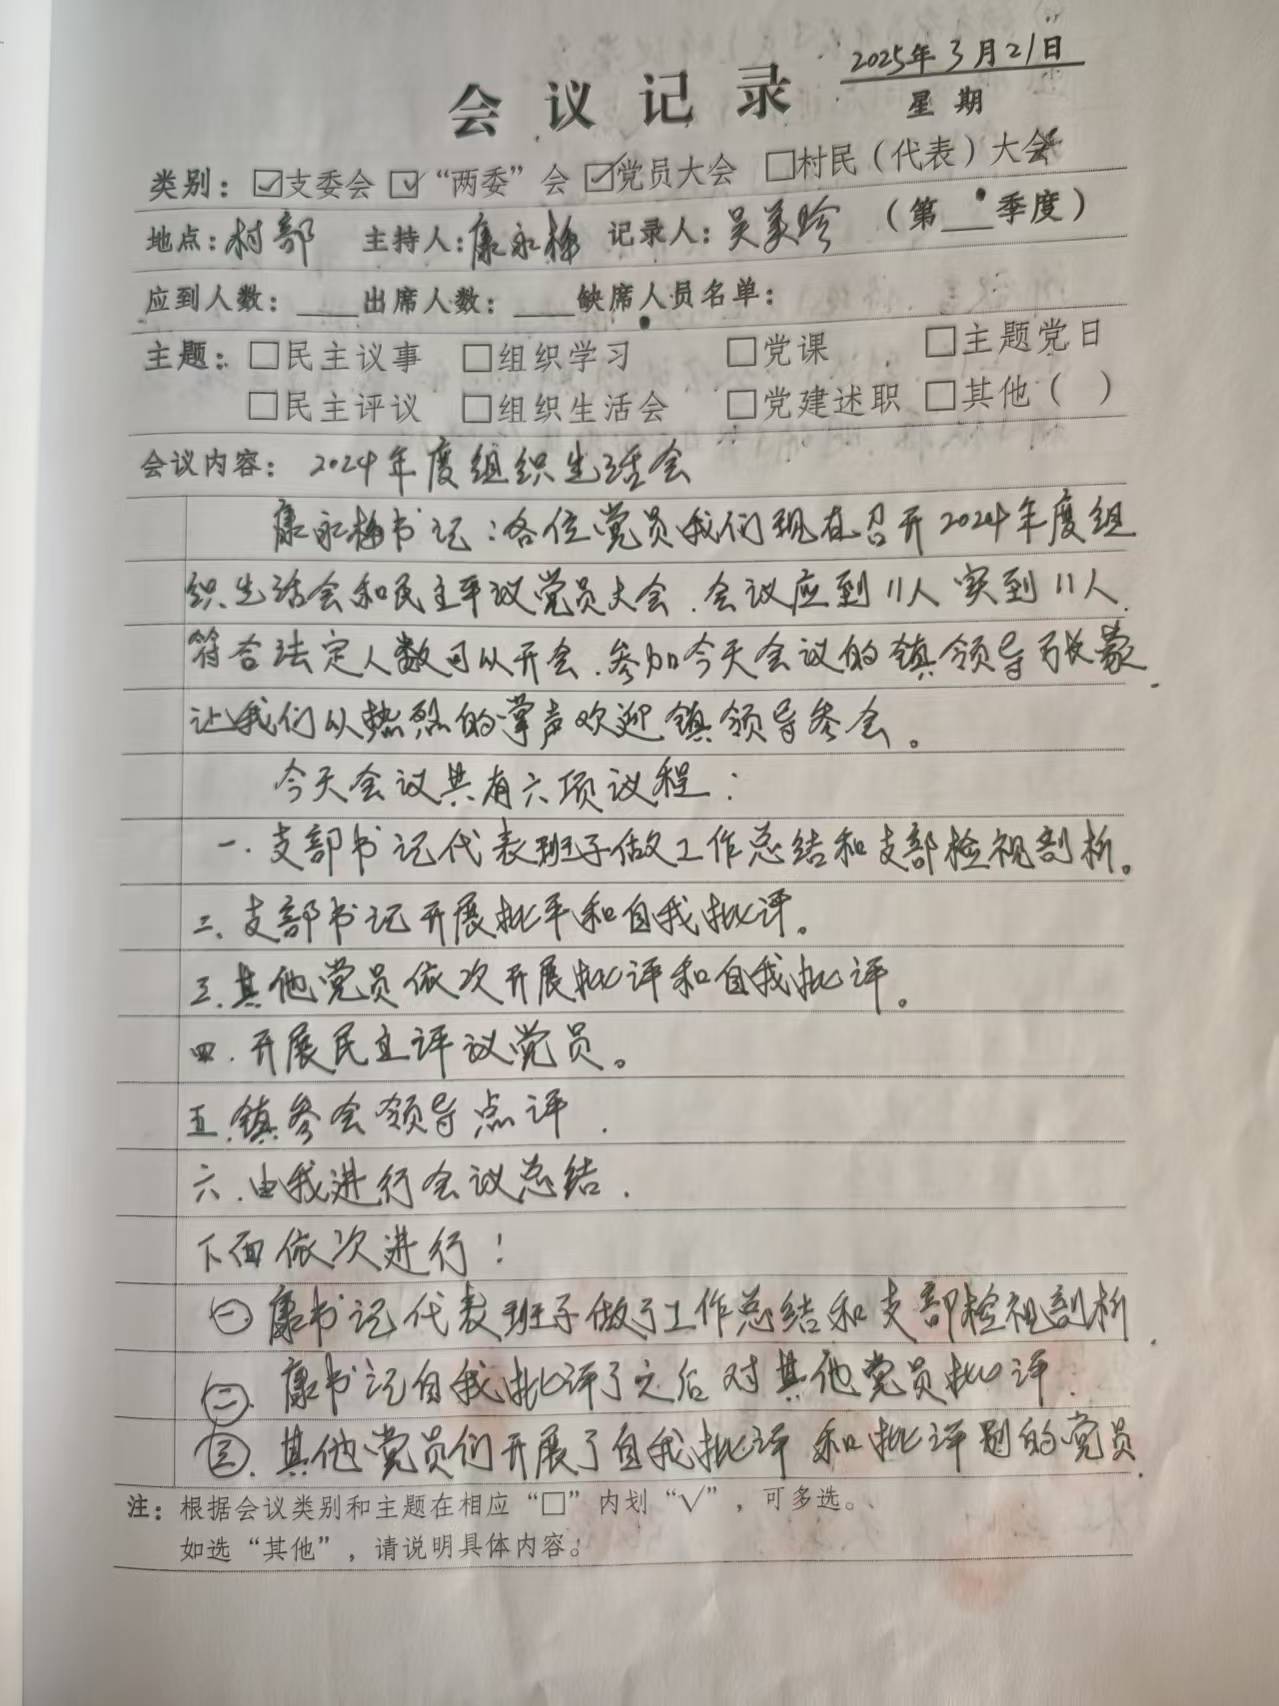 2025年3月21日
会议记录
星期
类别：☑支委会 ☑“两委”会 ☑党员大会 □村民（代表）大会
地点：村部 主持人：康永梅 记录人：吴美玲 （第___季度）
应到人数：____出席人数：____缺席人员名单：
主题：□民主议事 □组织学习 □党课 □主题党日
□民主评议 □组织生活会 □党建述职 □其他（ ）
会议内容：2024年度组织生活会
康永梅书记：各位党员我们现在召开2024年度组
织生活会和民主平议党员大会．会议应到11人 实到11人．
符合法定人数可以开会．参加今天会议的镇领导张蒙．
让我们以热烈的掌声欢迎镇领导参会。
今天会议共有六项议程：
一．支部书记代表班子做工作总结和支部检视剖析。
二、支部书记开展批平和自我批评。
三．其他党员依次开展批评和自我批评。
四．开展民主评议党员。
五．镇参会领导点评．
六．由我进行会议总结．
下面依次进行！
㊀康书记代表班子做了工作总结和支部检视剖析．
㊁．康书记自我批评了之后对其他党员批评．
㊂．其他党员们开展了自我批评和批评别的党员．
注：根据会议类别和主题在相应“□”内划“√”，可多选。
如选“其他”，请说明具体内容。